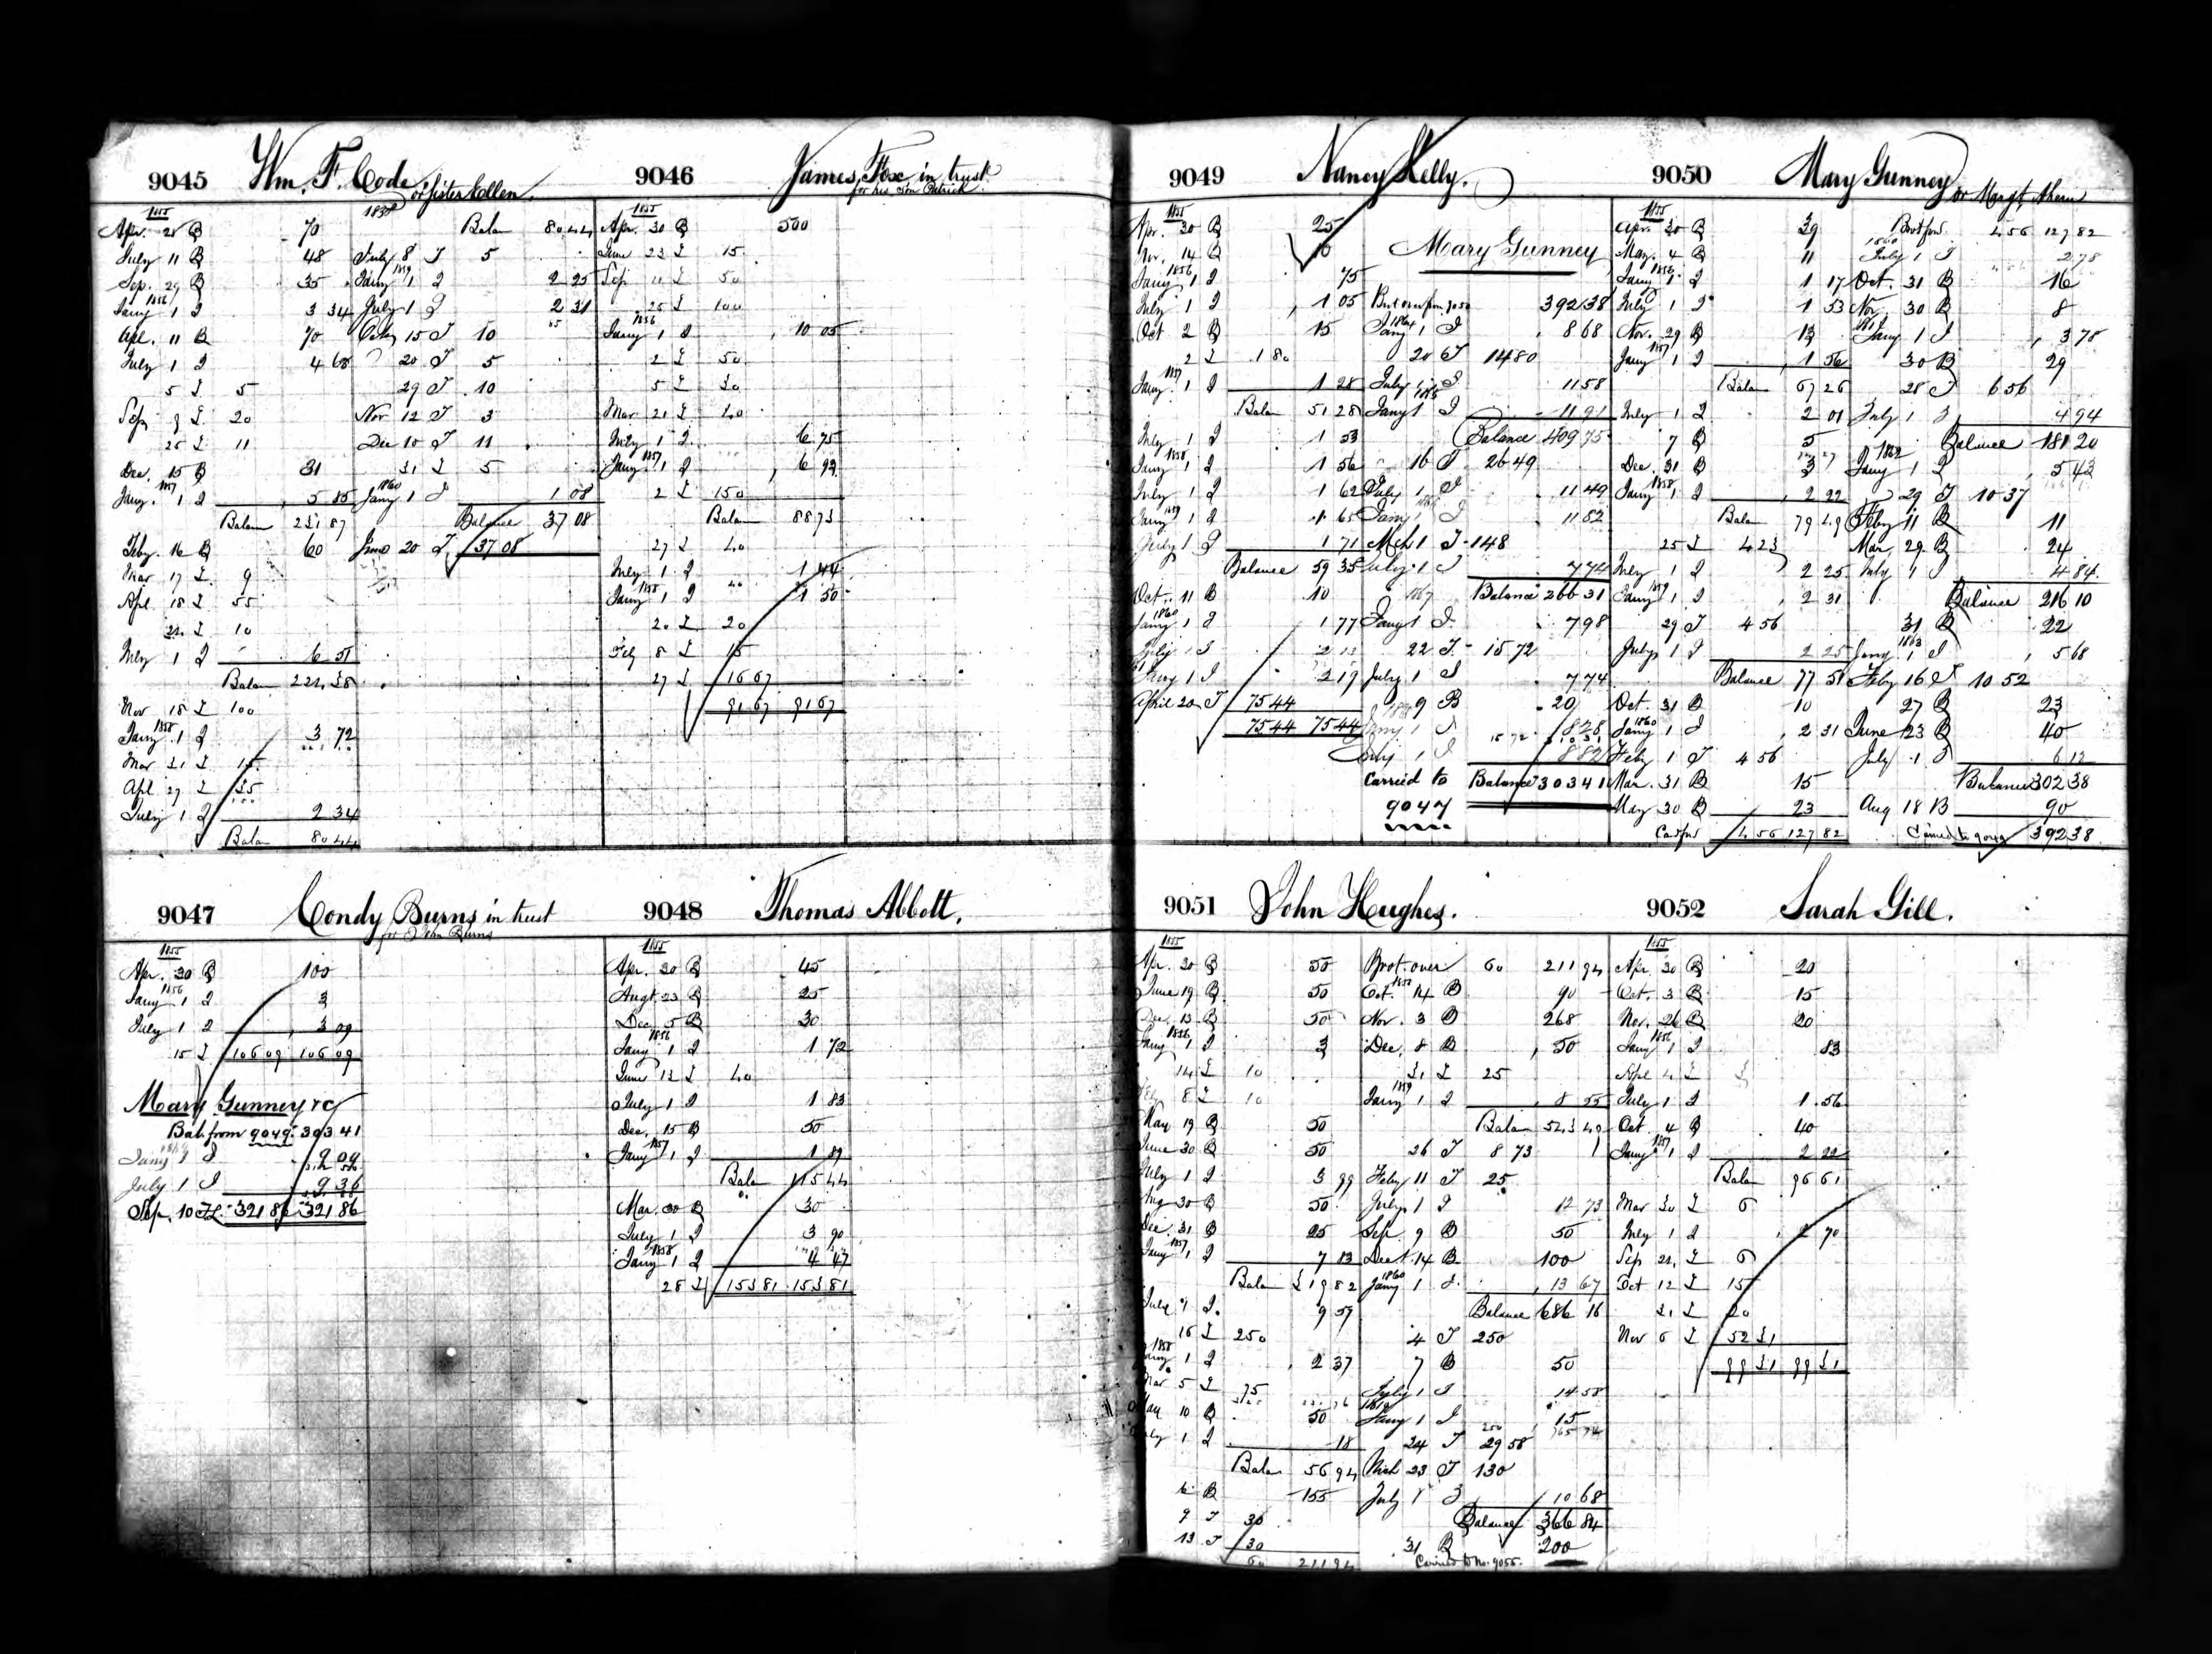 9045 Wm. F. Code or sister Ellen.
1855
Apr. 28 B 70
July 11 B 48
Sep. 29 B 35
1856
Jany 1 I 3 34
Apl. 11 B 70
July 1 I 4 68
5 L 5
Sep 9 L 20
25 L 11
Dec. 15 B 31
1857
Jany. 1 I 5 85
Balan 231 87
Feby. 16 B 60
Mar 17 L 9
Apl. 18 L 55
22 L 10
July 1 I 6 51
Balan 224 38
Nov 18 L 100
1858
Jany. 1 I 3 72
Mar 31 L 15
Apl 27 L 35
July 1 I 2 34
Balan 80 44
1858
Balan 80 44
July 8 T 5
1859
Jany 1 I 2 25
July 1 I 2 31
Octr 15 T 10
20 T 5
29 T 10
Nov 12 T 3
Dec 10 T 11
31 L 5
1860
Jany 1 I 1 08
Balance 37 08
20 T 37 08
9046 James Fox in trust
for his son Patrick
1855
Apr. 30 B 500
June 23 L 15
Sep 11 L 50
25 L 100
1856
Jany 1 I 10 05
2 L 50
5 L 30
Mar 21 L 40
July 1 I 6 75
1857
Jany 1 I 6 92
2 L 150
Balan 88 73
27 L 40
July 1 I 1 44
1858
Jany 1 I 1 50
20 L 20
Feb 8 L 15
27 L 16 67
91 67 91 67
9047 Condy Burns in trust
for John Burns
1855
Apr. 30 B 100
1856
Jany 1 I 3
July 1 I 3 09
15 L 106 09 106 09
Mary Gunney &c
Bal. from 9049. 303 41
Jany 1 I 9 09
July 1 I 9 36
Sep. 10 TL 321 86 321 86
9048 Thomas Abbott.
1855
Apr. 30 B 45
Augt. 23 B 25
Dec 5 B 30
1856
Jany 1 I 1 72
June 12 L 40
July 1 I 1 83
Dec. 15 B 50
1857
Jany 1 I 1 89
Balan 115 44
Mar. 30 B 30
July 1 I 3 90
1858
Jany 1 I 4 47
28 L 153 81 153 81
9049 Nancy Kelly.
1855
Apr. 30 B 25
Nov. 14 B 10
1856
Jany 1 I 75
July 1 I 1 05
Oct 2 B 15
2 L 1 80
1857
Jany. 1 I 1 28
Balan 51 28
July 1 I 1 53
1858
Jany 1 I 1 56
July 1 I 1 62
1859
Jany 1 I 1 65
July 1 I 1 71
Balance 59 35
Oct. 11 B 10
1860
Jany 1 I 1 77
July 1 I 2 13
61 Jany 1 I 2 19
April 20 T 75 44
75 44 75 44
Mary Gunney
Brot over from 9050 392 38
1864
Jany 1 I 8 68
20 T 14 80
July 1 I 11 58
1865
Jany 1 I 11 91
Balance 409 75
16 T 26 49
July 1 I 11 49
1866
Jany 1 I 11 82
Mch 1 T 148
July 1 I 7 74
1867 Balance 266 31
Jany 1 I 7 98
22 T 15 72
July 1 I 7 74
9 B 20
Jany 1 I 8 28
July 1 I 8 82
Carried to Balance 303 41
9047
9050 Mary Gunney or Margt. Ahern
1855
Apr. 30 B 39
May. 4 B 11
1856
Jany 1 I 1 17
July 1 I 1 53
Nov. 29 B 13
1857
Jany 1 I 1 56
Balan 67 26
July 1 I 2 01
7 B 5
Dec. 31 B 3
1858
Jany 1 I 2 22
Balan 79 49
25 L 4 23
July 1 I 2 25
1859
Jany 1 I 2 31
29 T 4 56
July 1 I 2 25
Balance 77 51
Oct. 31 B 10
1860
Jany 1 I 2 31
Feby 1 T 4 56
Mar. 31 B 15
May 30 B 23
Card fwd 4 56 127 82
Brot fwd 4 56 127 82
1860
July 1 I 2 78
Oct. 31 B 16
Nov. 30 B 8
1861
Jany 1 I 3 78
30 B 29
28 T 6 56
July 1 I 4 94
Balance 181 20
1862
Jany 1 I 5 43
29 T 10 37
Feby 11 B 11
Mar. 29 B 24
July 1 I 4 84
Balance 216 10
31 B 22
1863
Jany 1 I 5 68
Feby 16 T 10 52
27 B 23
June 23 B 40
July 1 I 6 12
Balance 302 38
Aug 18 B 90
Carried to 9049 392 38
9051 John Hughes.
1855
Apr. 30 B 50
June 19 B 50
Dec. 13 B 50
1856
Jany 1 I 3
14 L 10
Feby 8 L 10
May 19 B 50
June 30 B 50
July 1 I 3 99
Aug 30 B 50
Dec. 31 B 25
1857
Jany 1 I 7 13
Balan 319 82
July 1 I 9 57
16 L 250
1858
Jany 1 I 2 37
Mar 5 L 75
May 10 B 50
July 1 I 18
Balan 56 94
6 B 155
9 T 30
13 T 30
60 211 94
Brot. over 60 211 94
1858
Oct. 14 B 90
Nov. 3 B 268
Dec. 8 B 50
31 L 25
1859
Jany 1 I 8 55
Balan 543 49
26 T 8 73
Feby 11 T 25
July 1 I 12 73
Sep. 9 B 50
Dec. 14 B 100
1860
Jany 1 I 13 67
Balance 686 16
4 T 250
7 B 50
July 1 I 14 58
Jany 1 I 15
24 T 29 58
Mch 23 T 130
July 1 I 10 68
Balance 366 84
31 B 200
Carried to No. 9055.
9052 Sarah Gill.
1855
Apr. 30 B 20
Oct. 3 B 15
Nov. 26 B 20
1856
Jany 1 I 83
Apl. 4 L 3
July 1 I 1 56
Oct. 4 B 40
1857
Jany 1 I 2 22
Balan 96 61
Mar 30 L 6
July 1 I 2 70
Sep 21 L 6
Oct 12 L 15
31 L 20
Nov 6 L 52 31
99 31 99 31